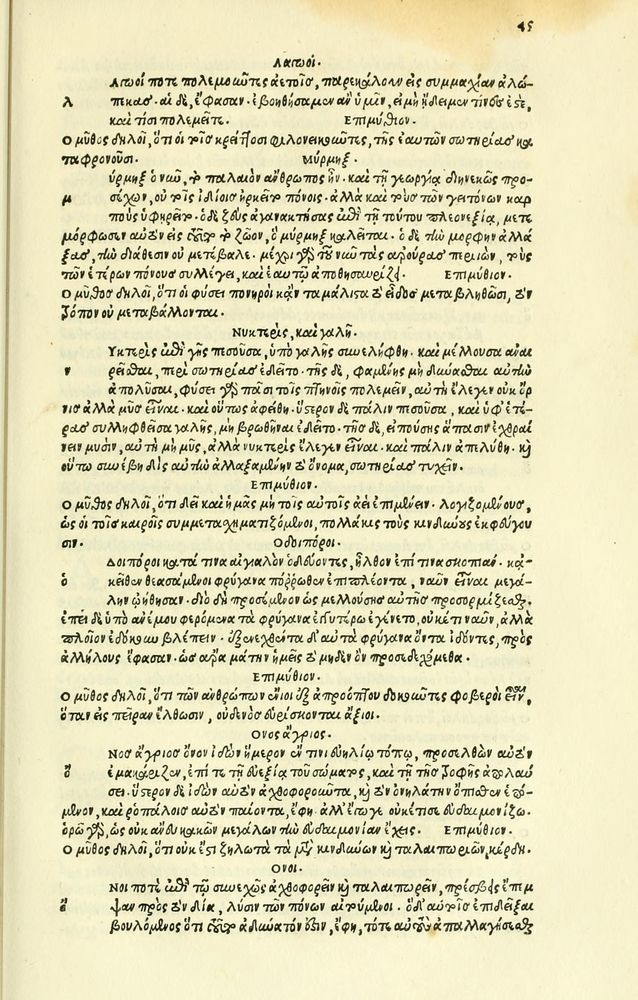 45
Λαγωοί.
Λαγωοί ποτε πολεμοῦντες ἀετοῖς, παρεκάλουν εἰς συμμαχίαν ἀλώ-
λ πεκας. αἱ δὲ, ἔφασαν. ἐβοηθήσαμεν ἂν ὑμῖν, εἰ μὴ ᾔδειμεν τίνες ἐστὲ,
καὶ τίσι πολεμεῖτε. Ἐπιμύθιον.
Ο μῦθος δηλοῖ, ὅτι οἱ τοῖς κρείττοσι φιλονεικοῦντες, τῆς ἑαυτῶν σωτηρίας κα
ταφρονοῦσι. Μύρμηξ.
ύρμηξ ὁ νῦν, τὸ παλαιὸν ἄνθρωπος ἦν. καὶ τῇ γεωργίᾳ διηνεκῶς προ-
μ σέχων, οὐ τοῖς ἰδίοις ἠρκεῖτο πόνοις. ἀλλὰ καὶ τοὺς τῶν γειτόνων καρ
ποὺς ὑφῃρεῖτο. ὁ δὲ ζεὺς ἀγανακτήσας ἐπὶ τῇ τούτου πλεονεξίᾳ, μετε
μόρφωσεν αὐτὸν εἰς τοῦτο τὸ ζῶον, ὃ μύρμηξ καλεῖται. ὁ δὲ τὴν μορφὴν ἀλλά
ξας, τὴν διάθεσιν οὐ μετέβαλε. μέχρι γὰρ τοῦ νῦν τὰς ἀρούρας περιιὼν, τοὺς
τῶν ἑτέρων πόνους συλλέγει, καὶ ἑαυτῷ ἀποθησαυρίζει. Ἐπιμύθιον.
Ο μῦθος δηλοῖ, ὅτι οἱ φύσει πονηροὶ κἂν τὰ μάλιστα τὸ εἶδος μεταβληθῶσι, τὸν
τρόπον οὐ μεταβάλλονται.
Νυκτερὶς, καὶ γαλῆ.
Υκτερὶς ἐπὶ γῆς πεσοῦσα, ὑπὸ γαλῆς συνελήφθη. καὶ μέλλουσα ἀναι
ν ρεῖσθαι, περὶ σωτηρίας ἐδεῖτο. τῆς δὲ, φαμένης μὴ δύνασθαι αὐτὴν
ἀπολῦσαι, φύσει γὰρ πᾶσι τοῖς πτηνοῖς πολεμεῖν, αὐτὴ ἔλεγεν οὐκ ὄρ
νις ἀλλὰ μῦς εἶναι. καὶ οὕτως ἀφείθη. ὕστερον δὲ πάλιν πεσοῦσα, καὶ ὑφ' ἑτέ-
ρας συλληφθεῖσα γαλῆς, μὴ βρωθῆναι ἐδεῖτο. τῆς δὲ, εἰπούσης ἅπασιν ἐχθραί
νειν μυσὶν, αὐτὴ μὴ μῦς, ἀλλὰ νυκτερὶς ἔλεγεν εἶναι. καὶ πάλιν ἀπελύθη. καὶ
οὕτω συνέβη δὶς αὐτὴν ἀλλαξαμένην τὸ ὄνομα, σωτηρίας τυχεῖν.
Ἐπιμύθιον.
Ο μῦθος δηλοῖ, ὅτι δεῖ καὶ ἡμᾶς μὴ τοῖς αὐτοῖς ἀεὶ ἐπιμένειν. λογιζομένους,
ὡς οἱ τοῖς καιροῖς συμμετασχηματιζόμενοι, πολλάκις τοὺς κινδύνους ἐκφεύγου
σιν. Ὁδοιπόροι.
Δοιπόροι κατά τινα αἰγιαλὸν ὁδεύοντες, ἦλθον ἐπί τινα σκοπιάν. κἀ-
ὁ κεῖθεν θεασάμενοι φρύγανα πόρρωθεν ἐπιπλέοντα, ναῦν εἶναι μεγά-
λην ᾠήθησαν. διὸ δὴ προσέμενον ὡς μελλούσης αὐτῆς προσορμίζεσθαι.
ἐπεὶ δὲ ὑπὸ ἀνέμου φερόμενα τὰ φρύγανα ἐγγυτέρω ἐγένετο, οὐκέτι ναῦν, ἀλλὰ
πλοῖον ἐδόκουν βλέπειν. ἐξενεχθέντα δ' αὐτὰ φρύγανα ὄντα ἰδόντες, πρὸς
ἀλλήλους ἔφασαν. ὡς ἄρα μάτην ἡμεῖς τὸ μηδὲν ὂν προσεδεχόμεθα.
Ἐπιμύθιον.
Ο μῦθος δηλοῖ, ὅτι τῶν ἀνθρώπων ἔνιοι ἐξ ἀπροόπτου δοκοῦντες φοβεροὶ εἶναι,
ὅταν εἰς πεῖραν ἔλθωσιν, οὐδενὸς εὑρίσκονται ἄξιοι.
Ὄνος ἄγριος.
Νος ἄγριος ὄνον ἰδὼν ἥμερον ἔν τινι εὐηλίῳ τόπῳ, προσελθὼν αὐτὸν
ὄ ἐμακάριζεν, ἐπί τε τῇ εὐεξίᾳ τοῦ σώματος, καὶ τῇ τῆς τροφῆς ἀπολαύ
σει. ὕστερον δὲ ἰδὼν αὐτὸν ἀχθοφοροῦντα, καὶ τὸν ὀνηλάτην ὄπισθεν ἑπό-
μενον, καὶ ῥοπάλοις αὐτὸν παίοντα, ἔφη. ἀλλ' ἔγωγε οὐκέτι σε εὐδαιμονίζω.
ὁρῶ γὰρ, ὡς οὐκ ἄνευ κακῶν μεγάλων τὴν εὐδαιμονίαν ἔχεις. Ἐπιμύθιον.
Ο μῦθος δηλοῖ, ὅτι οὐκ ἔστι ζηλωτὰ τὰ μετὰ κινδύνων καὶ ταλαιπωριῶν, κέρδη.
Ὄνοι.
Νοι ποτὲ ἐπὶ τῷ συνεχῶς ἀχθοφορεῖν καὶ ταλαιπωρεῖν, πρέσβεις ἔπεμ
ὄ ψαν πρὸς τὸν δία, λύσιν τῶν πόνων αἰτούμενοι. ὁ δ' αὐτοῖς ἐπιδεῖξαι
βουλόμενος ὅτι τοῦτο ἀδύνατόν ἐστιν, ἔφη, τότε αὐτοὺς ἀπαλλαγήσεσθαι